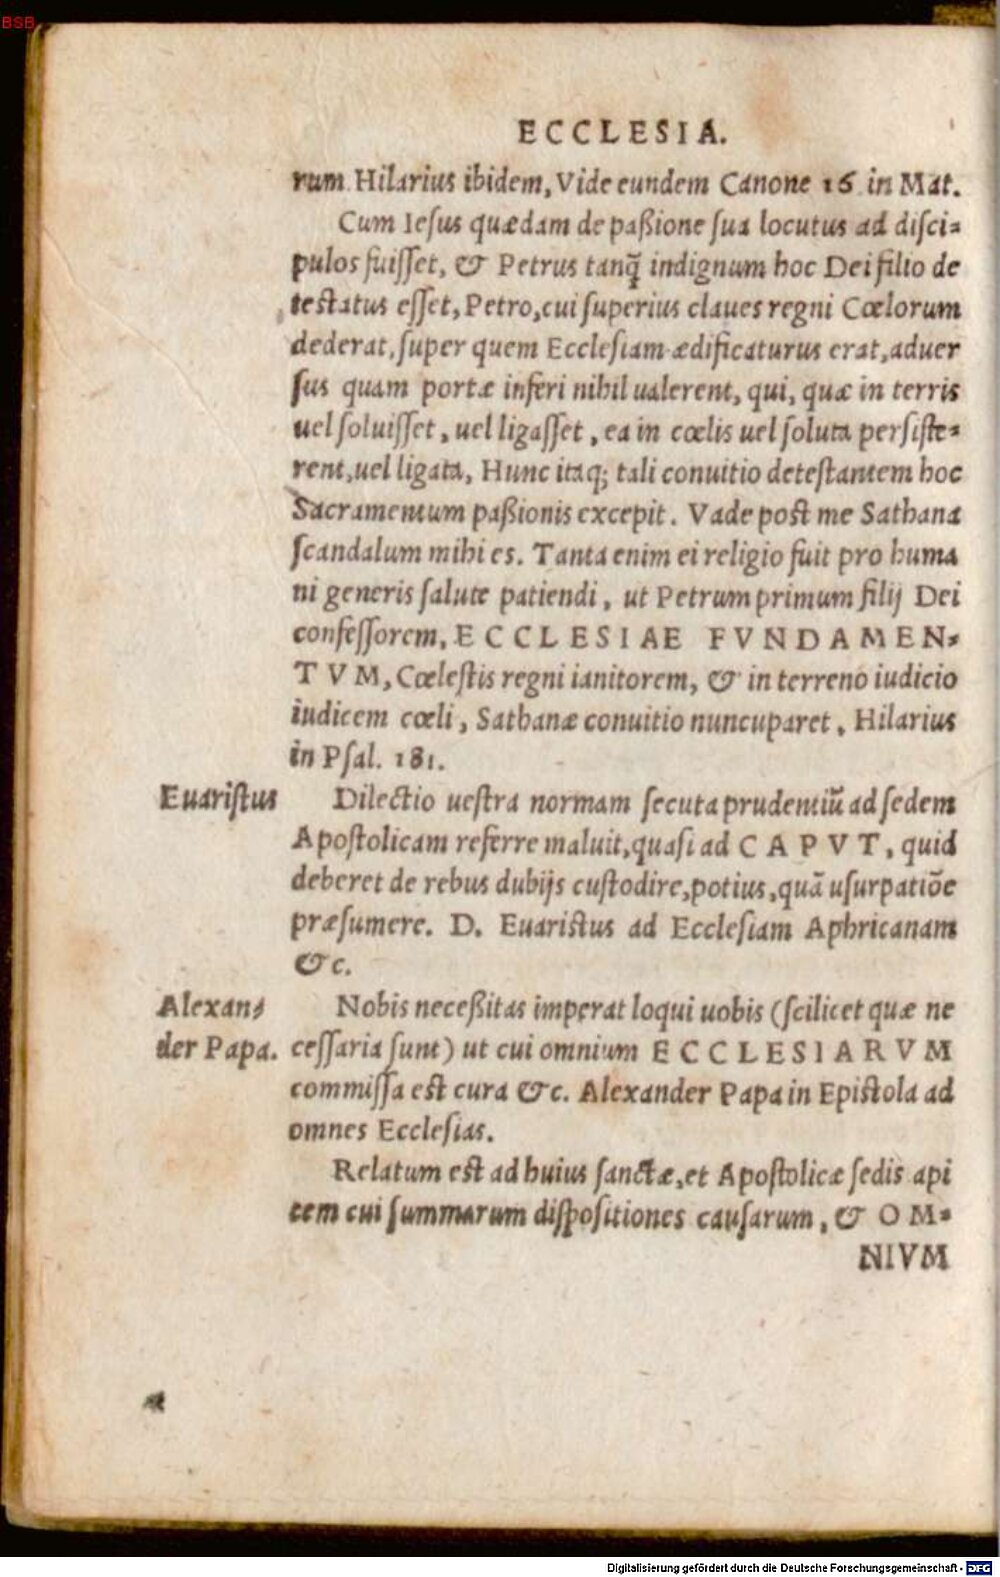 BSB
ECCLESIA.
rum Hilarius ibidem, Vide eundem Canone 16 in Mat.
Cum Iesus quædam de paßione sua locutus ad disci⸗
pulos fuisset, & Petrus tanq̃ indignum hoc Dei filio de
testatus esset, Petro, cui superius claues regni Cœlorum
dederat, super quem Ecclesiam ædificaturus erat, aduer
sus quam portæ inferi nihil ualerent, qui, quæ in terris
uel soluisset, uel ligasset, ea in cœlis uel soluta persiste⸗
rent, uel ligata, Hunc itaq; tali conuitio detestantem hoc
Sacramentum paßionis excepit. Vade post me Sathana
scandalum mihi es. Tanta enim ei religio fuit pro huma
ni generis salute patiendi, ut Petrum primum filij Dei
confessorem, ECCLESIAE FVNDAMEN⸗
TVM, Cœlestis regni ianitorem, & in terreno iudicio
iudicem cœli, Sathanæ conuitio nuncuparet, Hilarius
in Psal. 181.
Euaristus
Dilectio uestra normam secuta prudentiũ ad sedem
Apostolicam referre maluit, quasi ad CAPVT, quid
deberet de rebus dubijs custodire, potius, quã usurpatiõe
præsumere. D. Euaristus ad Ecclesiam Aphricanam
&c.
Alexan⸗
der Papa.
Nobis neceßitas imperat loqui uobis (scilicet quæ ne
cessaria sunt) ut cui omnium ECCLESIARVM
commissa est cura &c. Alexander Papa in Epistola ad
omnes Ecclesias.
Relatum est ad huius sanctæ, et Apostolicæ sedis api
cem cui summarum dispositiones causarum, & OM⸗
NIVM
Digitalisierung gefördert durch die Deutsche Forschungsgemeinschaft - DFG